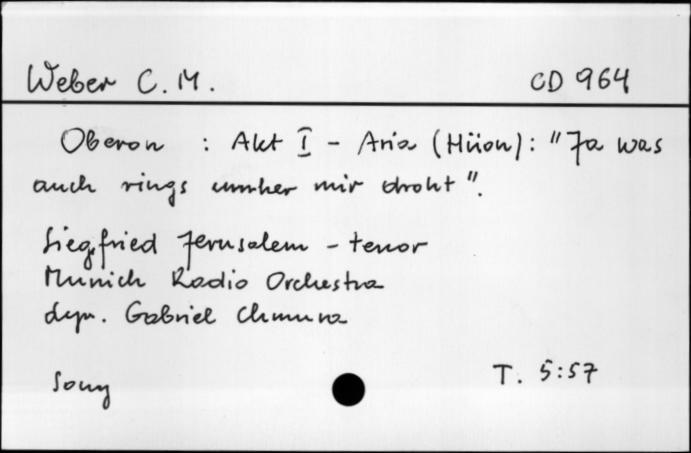 Weber C. M. CD 964
Oberon : Akt I - Aria (Hüon): "Ja was
auch rings umher mir droht".
Siegfried Jerusalem - tenor
Munich Radio Orchestra
dyr. Gabriel Chmura
Sony T. 5:57